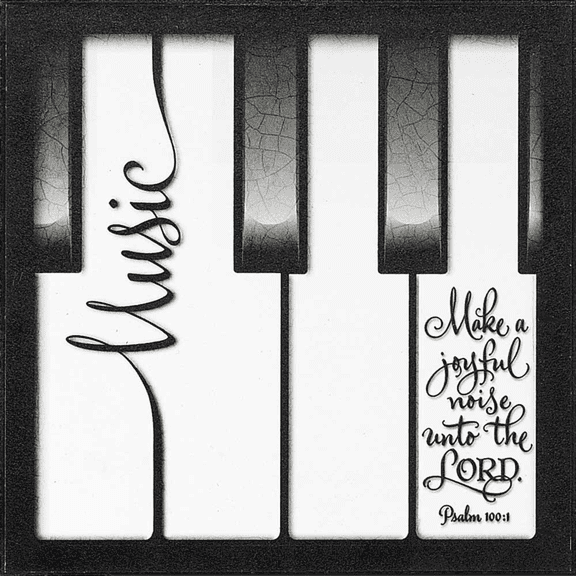 Music
Make a
joyful
noise
unto the
LORD.
Psalm 100:1